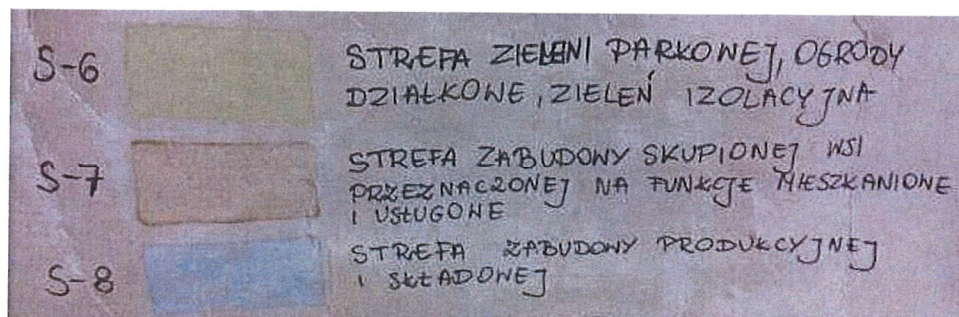 S-6 STREFA ZIELENI PARKOWEJ, OGRODY
DZIAŁKOWE, ZIELEŃ IZOLACYJNA
S-7 STREFA ZABUDOWY SKUPIONEJ WSI
PRZEZNACZONEJ NA FUNKCJE MIESZKANIONE
I USŁUGONE
S-8 STREFA ZABUDOWY PRODUKCYJNEJ
I SKŁADONEJ